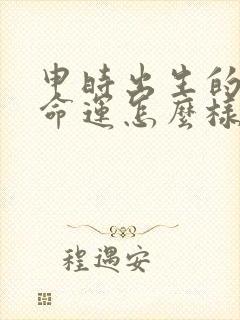 申時出生的
命運怎麼樣
程遇安